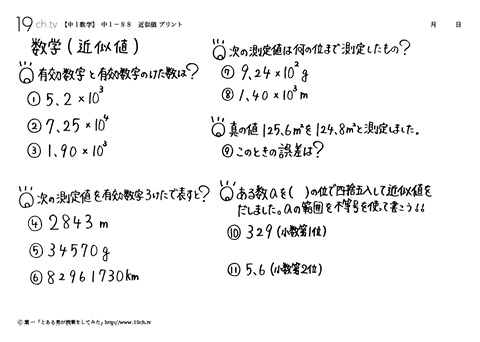 19ch.tv 【中1数学】 中1-88 近似値 プリント 月 日
数学(近似値)
有効数字と有効数字のけた数は?
① 5.2×10³
② 7.25×10⁴
③ 1.90×10³
次の測定値を有効数字3けたで表すと?
④ 2843m
⑤ 34570g
⑥ 82961730km
次の測定値は何の位まで測定したもの?
⑦ 9.24×10²g
⑧ 1.40×10³m
真の値125.6m²を124.8m²と測定しました。
⑨ このときの誤差は?
ある数aを( )の位で四捨五入して近似値を
だしました。aの範囲を不等号を使って書こう!!
⑩ 329(小数第1位)
⑪ 5.6(小数第2位)
© 葉一「とある男が授業をしてみた」http://www.19ch.tv